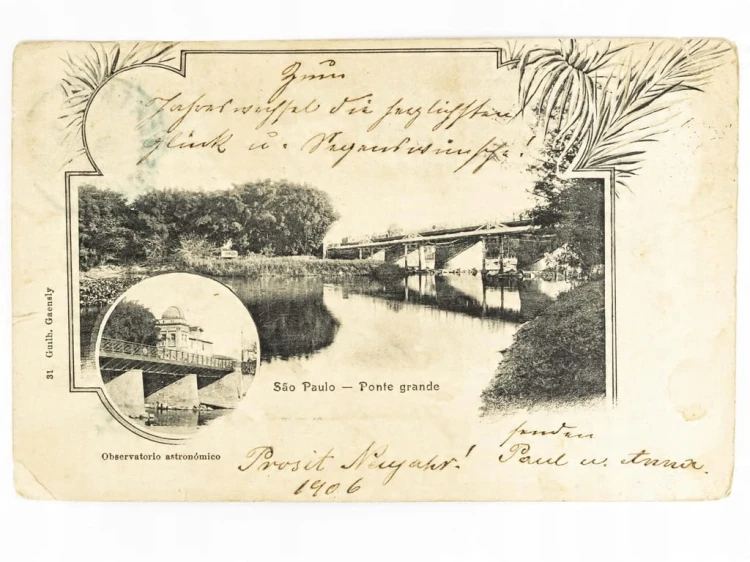 Zum
Jahreswechsel die herzlichsten
Glück u. Segenswünsche!
31 Guilh. Gaensly
São Paulo — Ponte grande
Observatorio astronómico
senden
Prosit Neujahr! Paul u. Anna.
1906